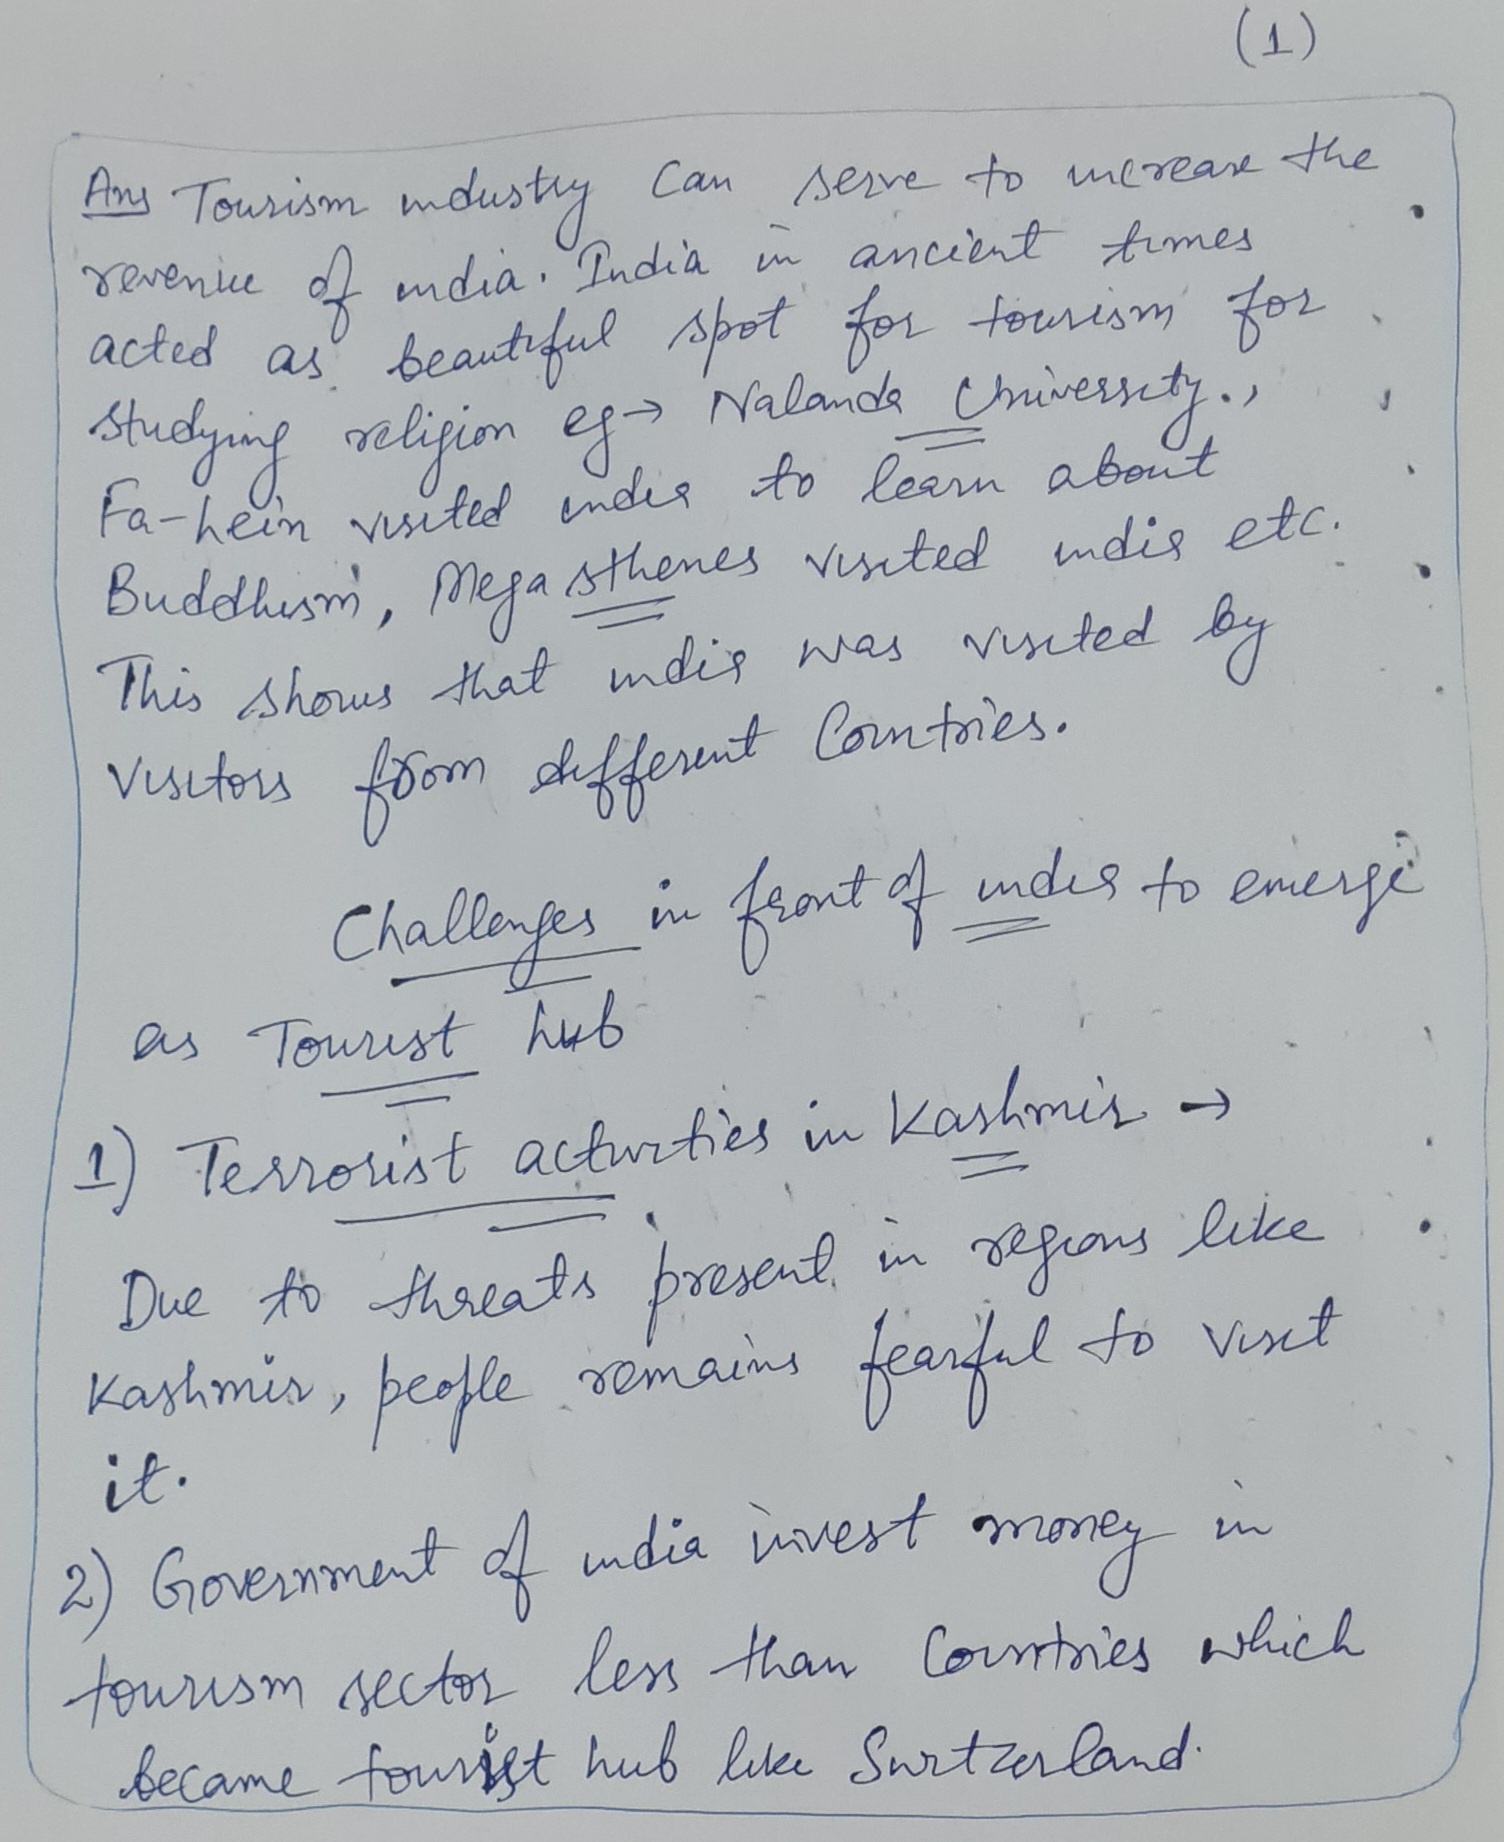 (1)
Ans Tourism industry can serve to increase the
revenue of india. India in ancient times
acted as beautiful spot for tourism for
studying religion eg→ Nalanda University.,
Fa-hein visited india to learn about
Buddhism, Megasthenes visited india etc.
This shows that india was visited by
visitors from different Countries.
Challenges in front of india to emerge
as Tourist hub
1) Terrorist activities in Kashmir →
Due to threats present in regions like
Kashmir, people remains fearful to visit
it.
2) Government of india invest money in
tourism sector less than Countries which
became tourist hub like Switzerland.